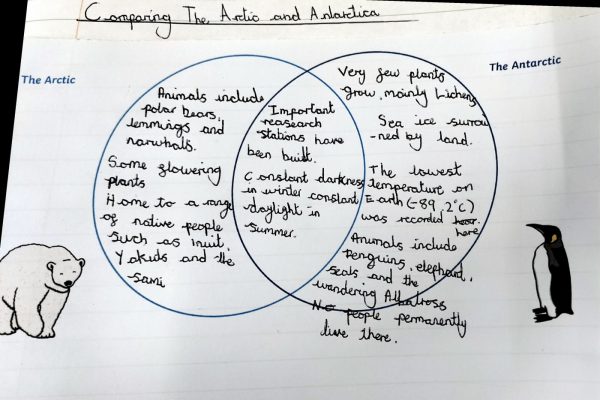 Comparing The Arctic and Antarctica
The Arctic
Animals include
polar bears,
lemmings and
narwhals.
Some flowering
plants
Home to a range
of native people
such as inuit,
Yakuts and the
Sami
Important
reasearch
stations have
been built.
Constant darkness
in winter constant
daylight in
summer.
The Antarctic
Very few plants
grow, mainly Lichens
Sea ice surrou
-ned by land.
The lowest
temperature on
Earth (-89.2°C)
was recorded hear.
here
Animals include
penguins, elephant,
seals and the
wandering Albatross
No people permanently
live there.